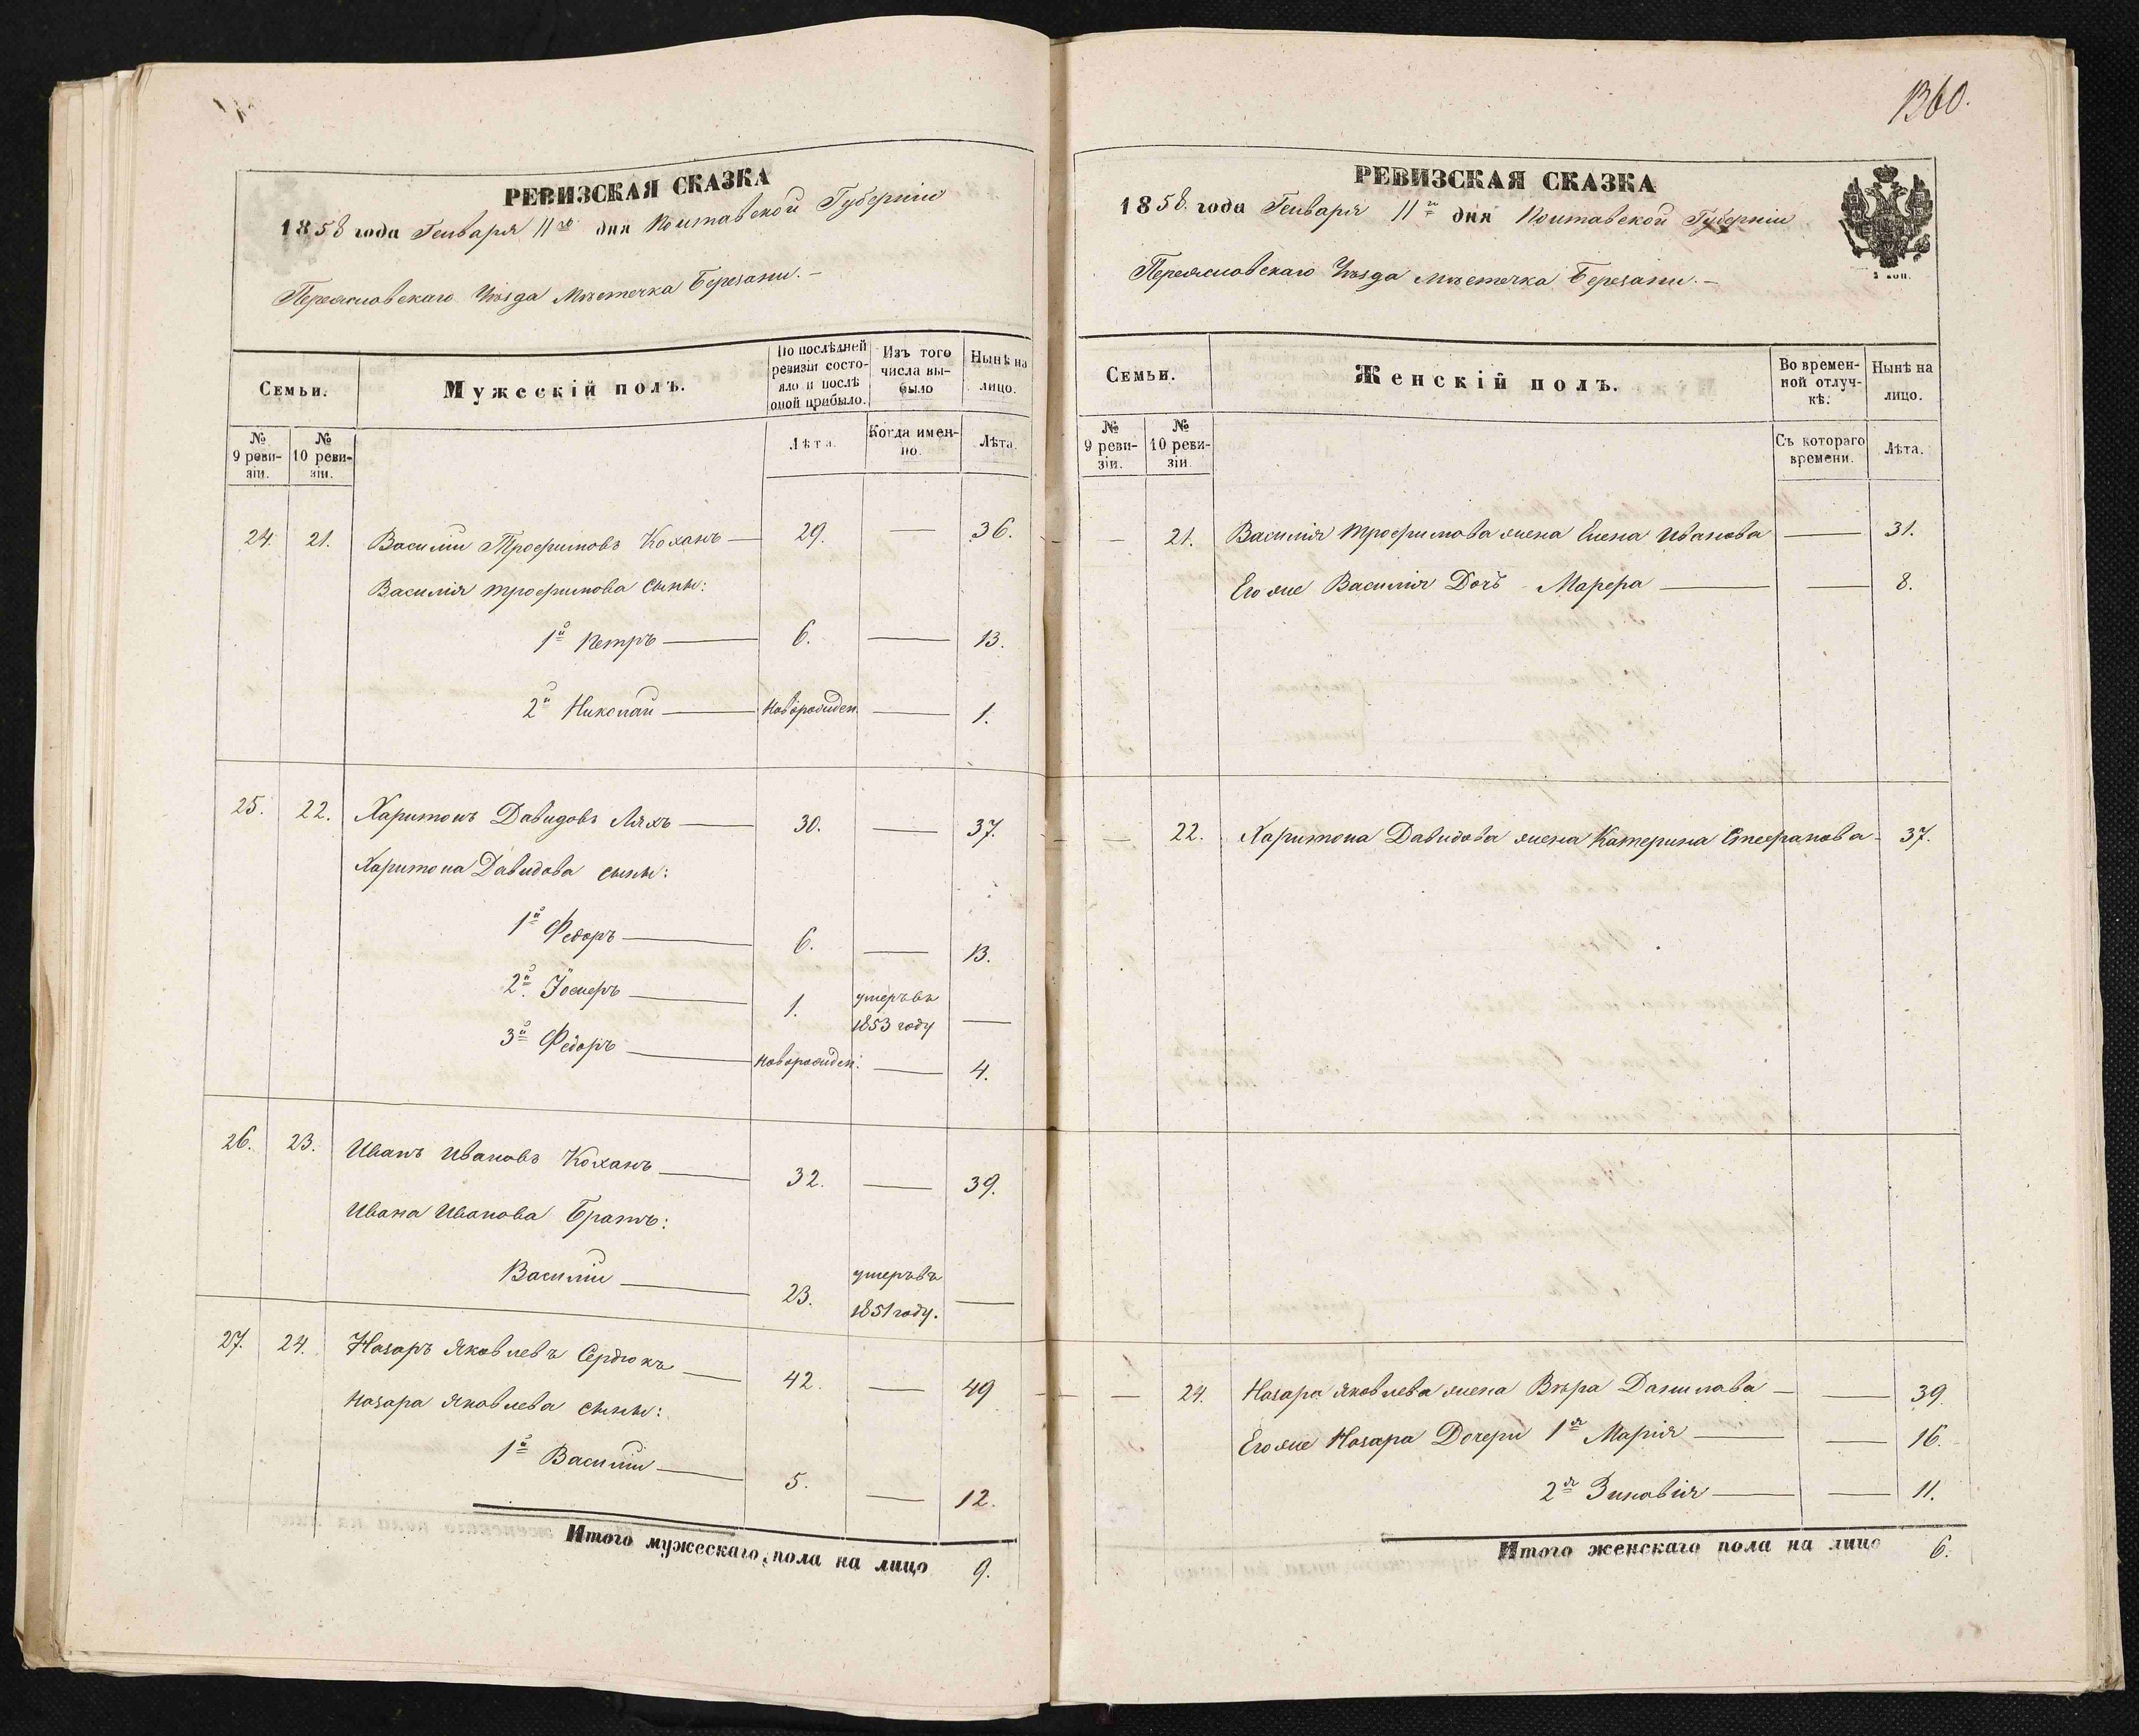 РЕВИЗСКАЯ СКАЗКА
1858 года Генваря 11го дня Полтавской Губернии
Переяславскаго Уѣзда Мѣстечка Березани. –
Семьи.
Мужескій полъ.
По послѣдней ревизіи состояло и послѣ оной прибыло.
Изъ того числа выбыло
Нынѣ на лицо.
№ 9 ревизіи.
№ 10 ревизіи.
Лѣта.
Когда именно.
Лѣта.
24. 21. Василій Трофимовъ Коханъ — 29. — 36.
Василія Трофимова сыны:
1й Петръ — 6. — 13.
2й Николай — Новорожден. — 1.
25. 22. Харитонъ Давидовъ Ляхъ — 30. — 37.
Харитона Давидова сыны:
1й Федоръ — 6. — 13.
2й — 1. умеръ въ
1853 году —
3й Федоръ — новорожден: — 4.
26. 23. Иванъ Ивановъ Коханъ — 32. — 39.
Ивана Иванова Братъ:
Василій — 23. умеръ въ
1851 году. —
27. 24. Назаръ Яковлевъ Сердюкъ — 42. — 49
Назара Яковлева сыны:
1й Василій — 5. — 12.
Итого мужескаго пола на лицо 9.
1360.
РЕВИЗСКАЯ СКАЗКА
1858 года Генваря 11го дня Полтавской Губерніи
Переяславскаго Уѣзда Мѣстечка Березани. –
Семьи.
Женскій полъ.
Во временной отлучкѣ.
Нынѣ на лицо.
№ 9 ревизіи.
№ 10 ревизіи
Съ котораго времени.
Лѣта.
— 21. Василія Трофимова жена Елена Иванова — 31.
Его же Василія Дочь Марфа — — 8.
— 22. Харитона Давидова жена Катерина Стефанова – 37.
— 24. Назара Яковлева жена Вѣра Данилова — — 39
Его же Назара Дочери 1я Марія — — 16.
2я Зиновія — — 11.
Итого женскаго пола на лицо 6.